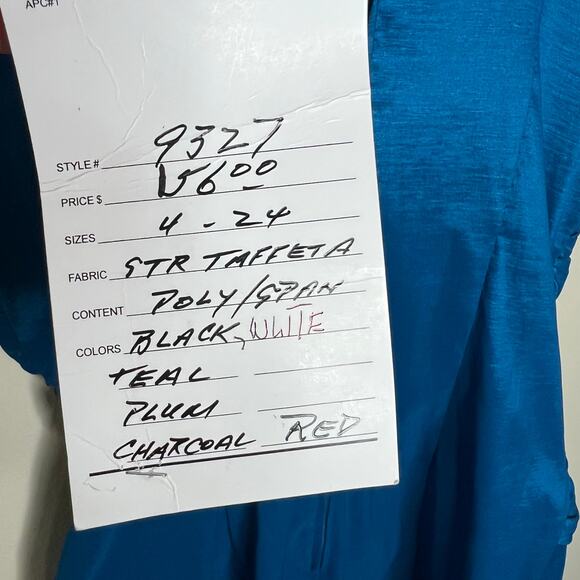 APC#1
STYLE # 9327
PRICE $ 156 00
SIZES 4 - 24
FABRIC STR TAFFETA
CONTENT POLY/SPAN
COLORS BLACK, WHITE
TEAL
PLUM
CHARCOAL RED